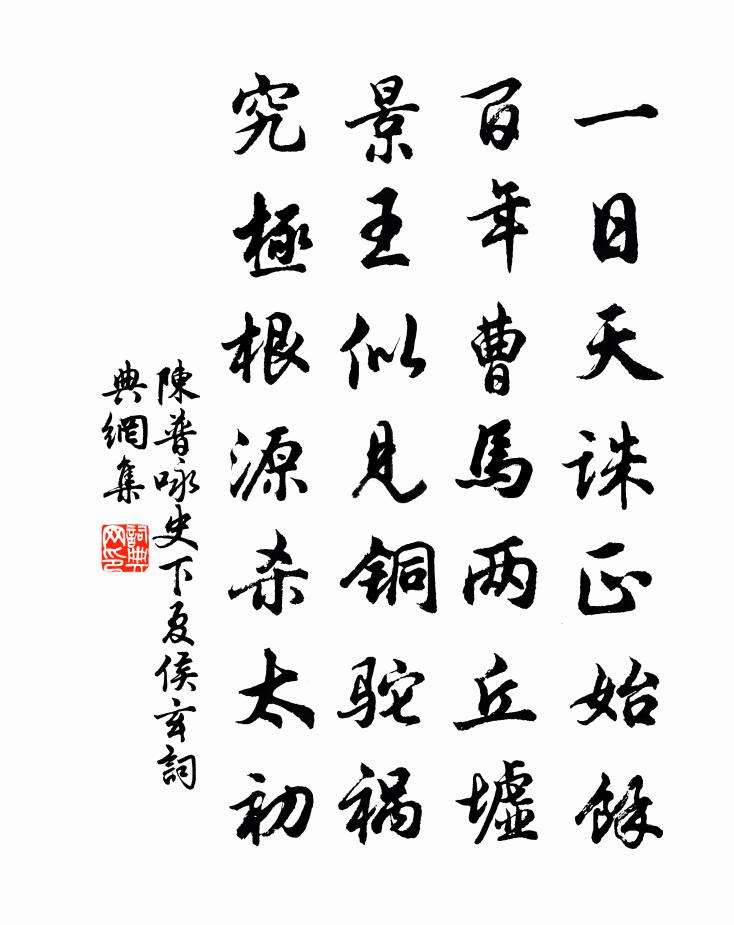 一日天诛正始餘
百年曹馬两丘墟
景王似見铜驼祸
究極根源杀太初
陳普咏史下夏侯玄詞
典網集
詞典网印